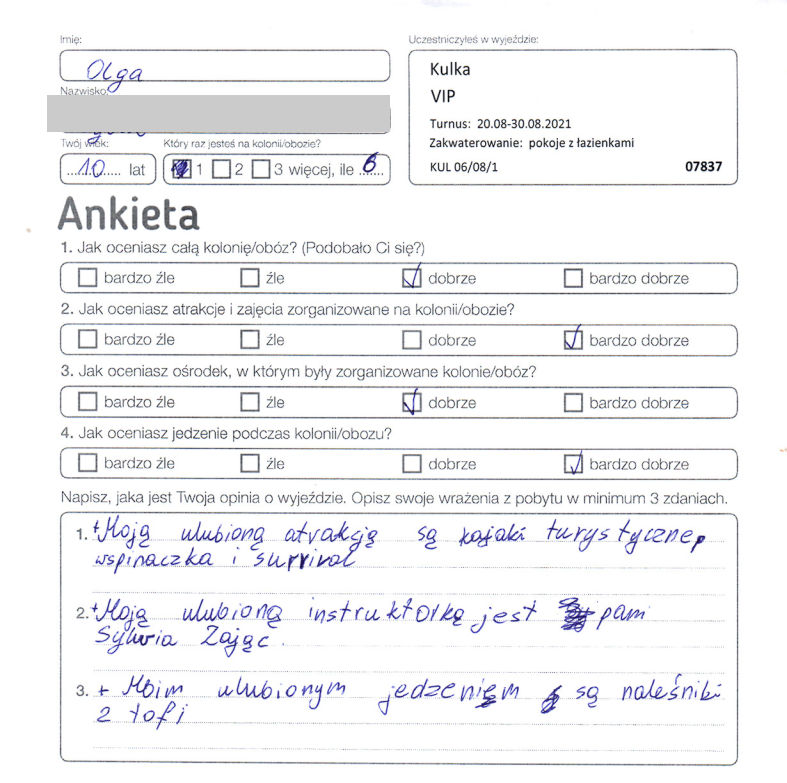 Imię:
Olga
Nazwisko:
Twój wiek:
10 lat
Który raz jesteś na kolonii/obozie?
1 2 3 więcej, ile 6
Uczestniczyłeś w wyjeździe:
Kulka
VIP
Turnus: 20.08-30.08.2021
Zakwaterowanie: pokoje z łazienkami
KUL 06/08/1 07837
Ankieta
1. Jak oceniasz całą kolonię/obóz? (Podobało Ci się?)
bardzo źle źle dobrze bardzo dobrze
2. Jak oceniasz atrakcje i zajęcia zorganizowane na kolonii/obozie?
bardzo źle źle dobrze bardzo dobrze
3. Jak oceniasz ośrodek, w którym były zorganizowane kolonie/obóz?
bardzo źle źle dobrze bardzo dobrze
4. Jak oceniasz jedzenie podczas kolonii/obozu?
bardzo źle źle dobrze bardzo dobrze
Napisz, jaka jest Twoja opinia o wyjeździe. Opisz swoje wrażenia z pobytu w minimum 3 zdaniach.
1. + Moją ulubioną atrakcją są kajaki turystyczne,
wspinaczka i surrival
2. + Moją ulubioną instruktorką jest pani
Sylwia Zając.
3. + Moim ulubionym jedzeniem są naleśniki
z tofi